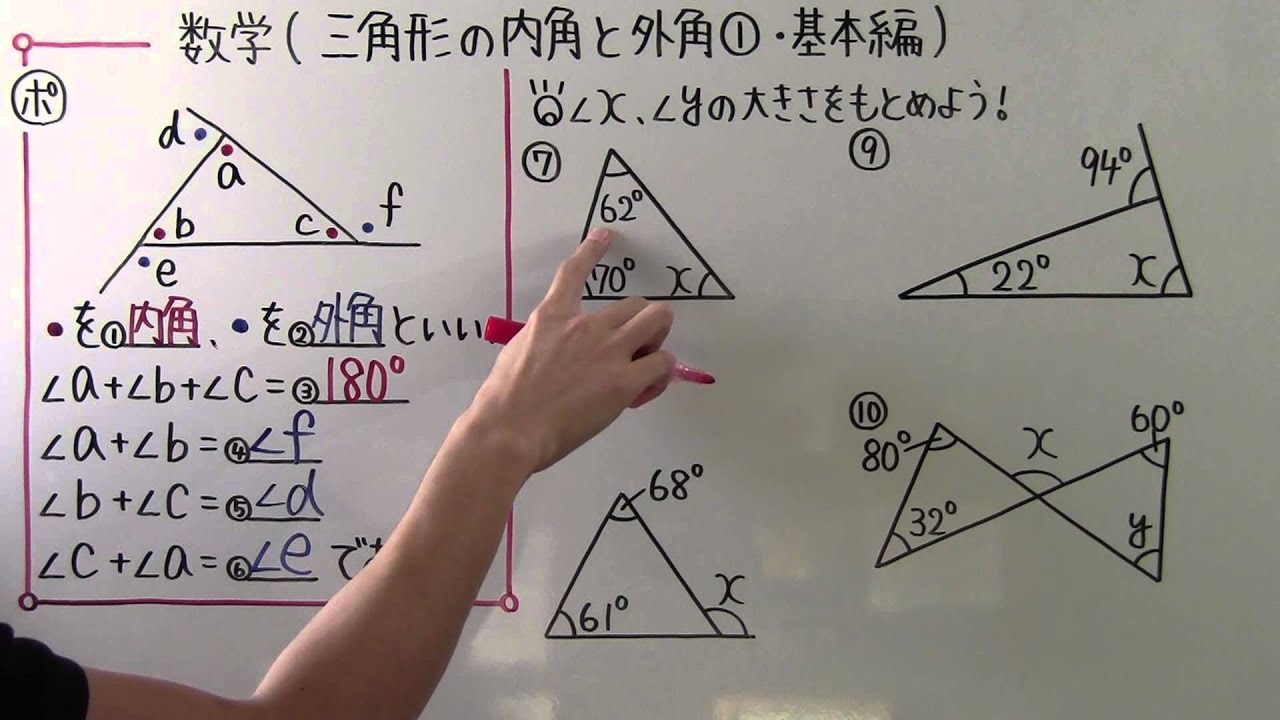 数学(三角形の内角と外角①・基本編)
ポ
d
a
b
c
f
e
•を①内角、•を②外角といい
∠a+∠b+∠c=③180°
∠a+∠b=④∠f
∠b+∠c=⑤∠d
∠c+∠a=⑥∠e で
∠x、∠yの大きさをもとめよう!
⑦
62°
70°
x
68°
61°
x
⑨
94°
22°
x
⑩
80°
32°
x
60°
y